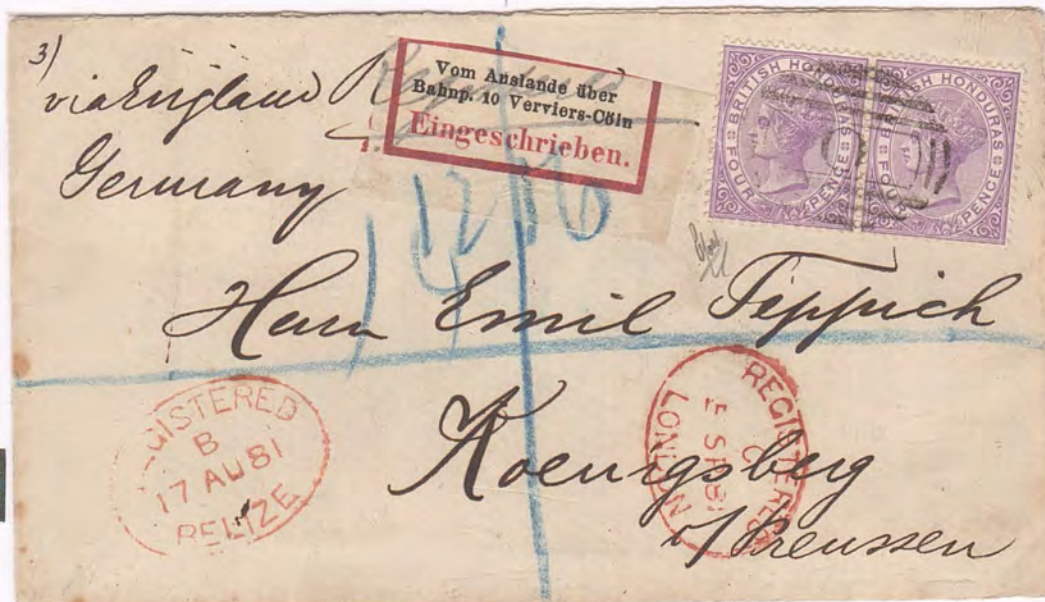 3)
via England
Germany
Vom Auslande über
Bahnp. 10 Verviers-Cöln
Eingeschrieben.
BRITISH HONDURAS
FOUR PENCE
BRITISH HONDURAS
FOUR PENCE
Herrn Emil Teppich
Koenigsberg
i/Preussen
REGISTERED
B
17 AU 81
BELIZE
REGISTERED
LONDON